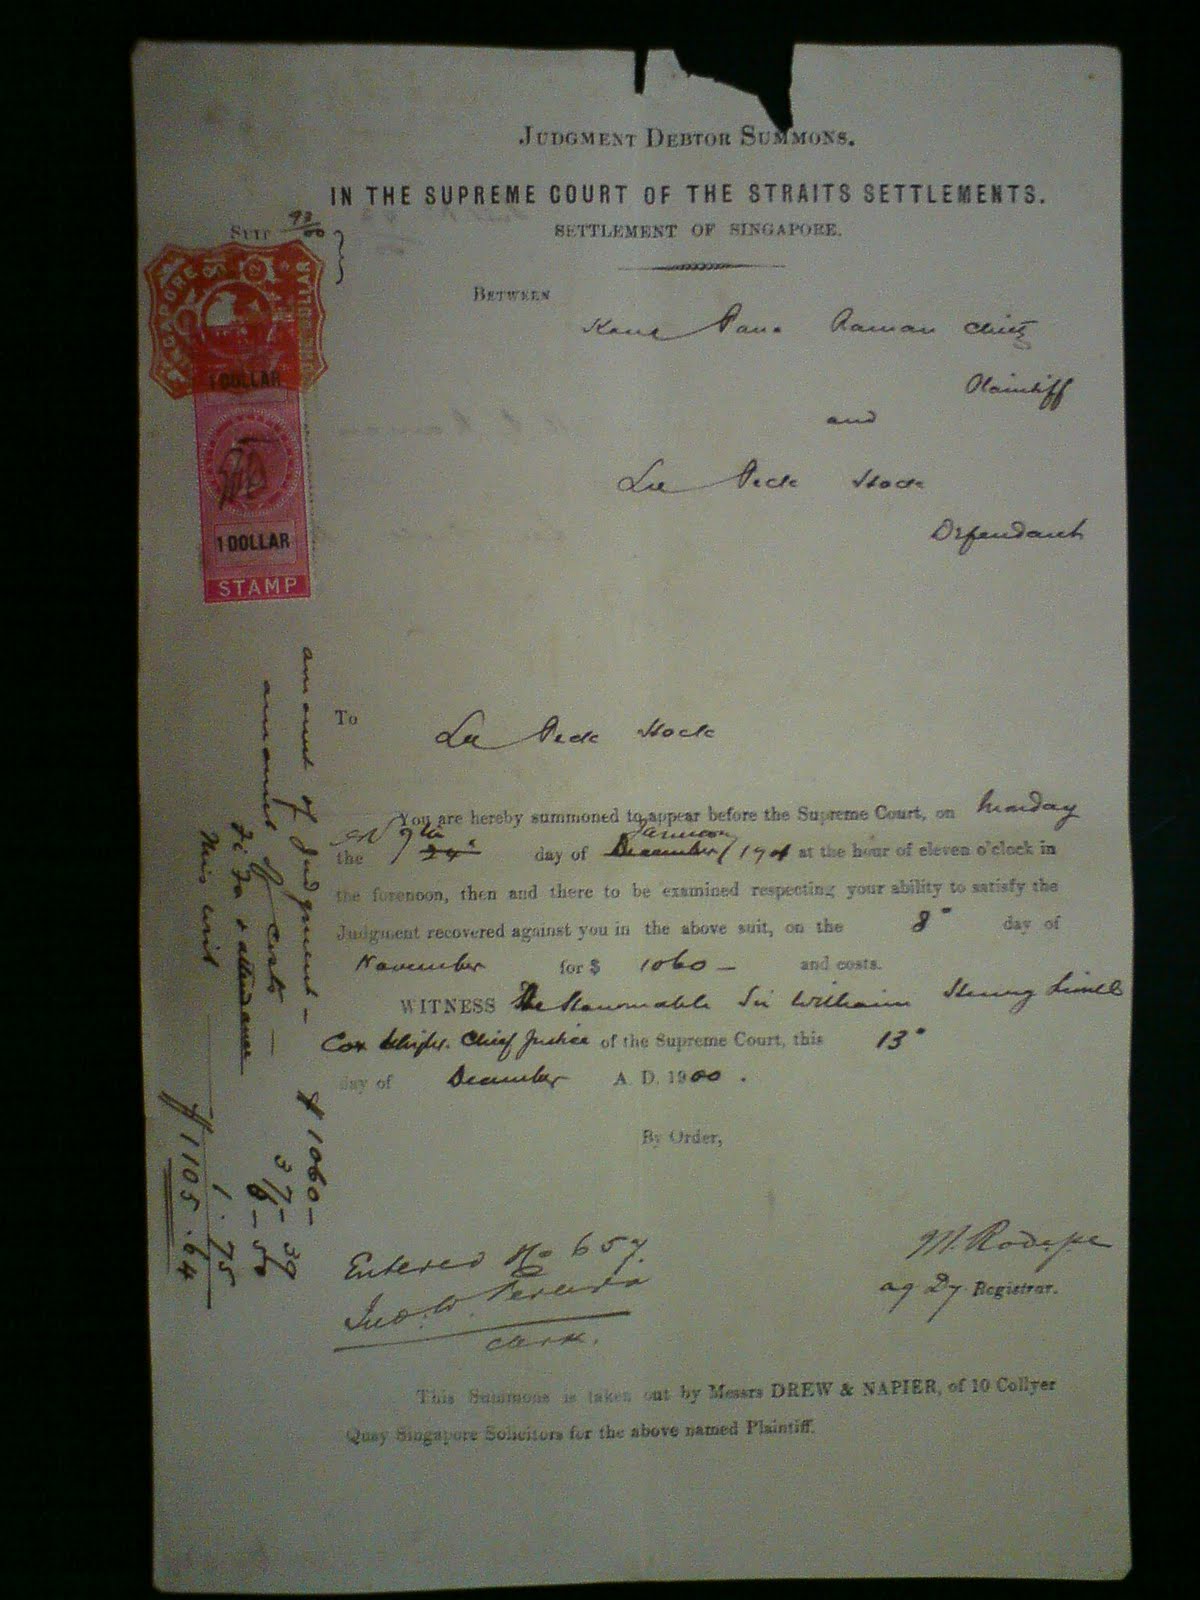 JUDGMENT DEBTOR SUMMONS.
IN THE SUPREME COURT OF THE STRAITS SETTLEMENTS.
SETTLEMENT OF SINGAPORE.
SUIT 93/00
BETWEEN
Kana Pana Raman Chitty
Plaintiff
and
Lee Peck Hock
Defendant
SINGAPORE
ONE DOLLAR
1 DOLLAR
1 DOLLAR
STAMP
To
Lee Peck Hock
You are hereby summoned to appear before the Supreme Court, on Monday
the 7th 24" day of January December 1901 at the hour of eleven o'clock in
the forenoon, then and there to be examined respecting your ability to satisfy the
Judgment recovered against you in the above suit, on the 8" day of
November for $ 1060 — and costs.
WITNESS The Honourable Sir William Henry Lionel
Cox Knight. Chief Justice of the Supreme Court, this 13"
day of December A. D. 1900.
By Order,
amount of Judgment — $ 1060 —
amount of costs — 37 - 39
Fi Fa & attendance 6 - 50
This writ 1 . 75
$ 1105 . 64
Entered No 657.
Jno. W. Pereira
Clerk.
ag Dy Registrar.
This Summons is taken out by Messrs DREW & NAPIER, of 10 Collyer
Quay Singapore Solicitors for the above named Plaintiff.